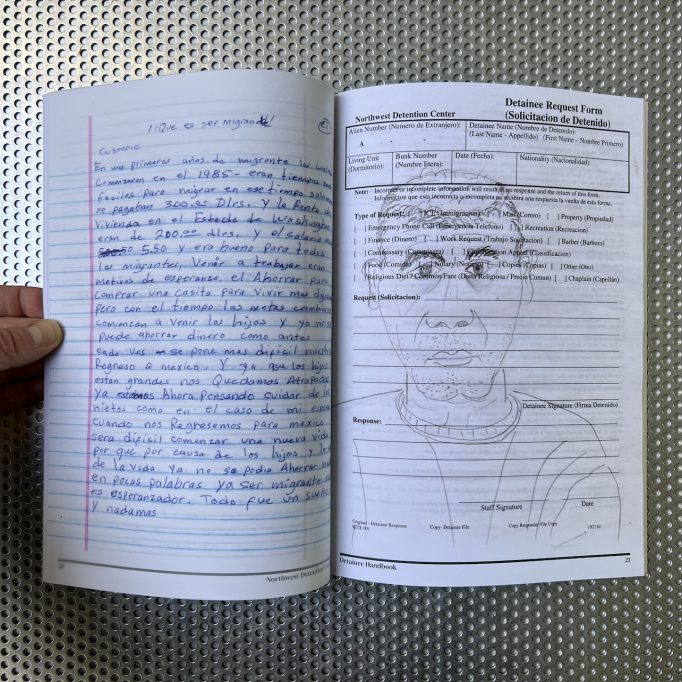 ¡¡Que es ser migrante!!
CUSTODIO
En mis primeros años de migrante los
Comenzaron en el 1985- eran tiempos mas
faciles para migrar en ese tiempo solo se
se pagaban 300.00 Dlrs. Y la Renta de
vivienda en el Estado de Washington
eran de 200.00 dlrs, y el salario
5.50 y era bueno para todos
los migrantes, Venir a trabajar eran
motivos de esperanza. el Ahorrar para
Comprar una casita para Vivir mas
pero con el tiempo las metas cambiaron
comienzan a venir los hijos y ya no se
puede ahorrar dinero como antes
cada ves se pone mas dificil nuestro
Regreso a mexico. Y ya que los hijos
estan grandes nos Quedamos Atrapados
ya Ahora Pensando cuidar de los
nietos como en el caso de mi esposa
cuando nos Regresemos para mexico
sera dificil comenzar una nueva vida
por que por causa de los hijos y
de la vida Ya no se podia Ahorrar
en pocas palabras ya ser migrante no
es esperanzador. Todo fue un sueño
Y nadamas
20
Northwest Detention
Northwest Detention Center
Detainee Request Form
(Solicitacion de Detenido)
Alien Number (Numero de Extranjero):
A
Detainee Name (Nombre de Detenido):
(Last Name - Appellido) (First Name – Nombre Primero)
Living Unit
(Dormitorio):
Bunk Number
(Numero litera):
Date (Fecha):
Nationality (Nacionalidad):
Note: Incorrect or incomplete information will result in no response and the return of this form.
Informacion que esta incorrecta o incompleta no recibira una respuesta la vuelta de esta forma.
Type of Request: [ ] ICE (Immigracion) [ ] Mail (Correo) [ ] Property (Propiedad)
[ ] Emergency Phone Call (Emergencia Telefono) [ ] Recreation (Recreacion)
[ ] Finance (Dinero) [ ] Work Request (Trabajo Solicitacion) [ ] Barber (Barbero)
[ ] Commissary [ ] Classification Appeal (Classificacion)
[ ] Food (Comida) [ ] Notary (Notario) [ ] Copies (Copias) [ ] Other (Otro)
[ ] Religious Diet / Common Fare (Dieta Religiosa / Precio Comun) [ ] Chaplain (Capellán)
Request (Solicitacion):
Detainee Signature (Firma Detenido)
Response:
Staff Signature
Date
Original - Detainee Response
Copy- Detainee File
Copy Responder File Copy
Detainee Handbook
21